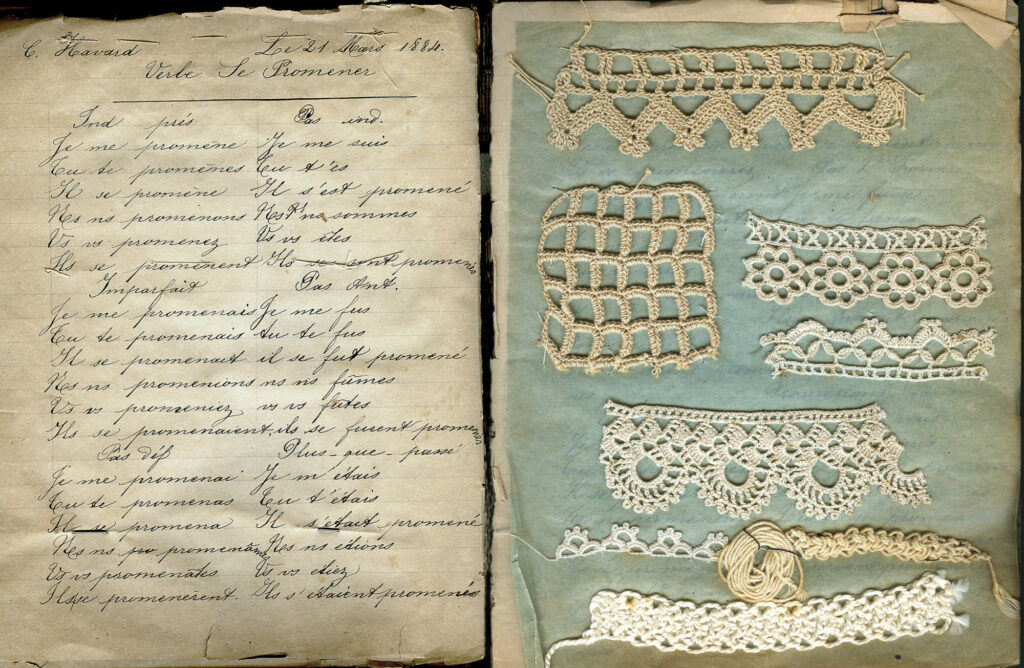 C. Havard Le 21 Mars 1884.
Verbe Se Promener
Ind prés Pas ind.
Je me promène Je me suis
Tu te promènes Tu t'es
Il se promène Il s'est promené
Ns ns promenons Ns ns sommes
Vs vs promenez Vs vs êtes
Ils se promènent Ils se sont promenés
Imparfait Pas Ant.
Je me promenais Je me fus
Tu te promenais tu te fus
Il se promenait il se fut promené
Ns ns promenions ns ns fûmes
Vs vs promeniez vs vs fûtes
Ils se promenaient ils se furent promenés
Pas déf Plus-que-passé
Je me promenai Je m'étais
Tu te promenas Tu t'étais
Il se promena Il s'était promené
Ns ns promenâmes Ns ns étions
Vs vs promenâtes Vs vs étiez
Ils se promenèrent. Ils s'étaient promenés